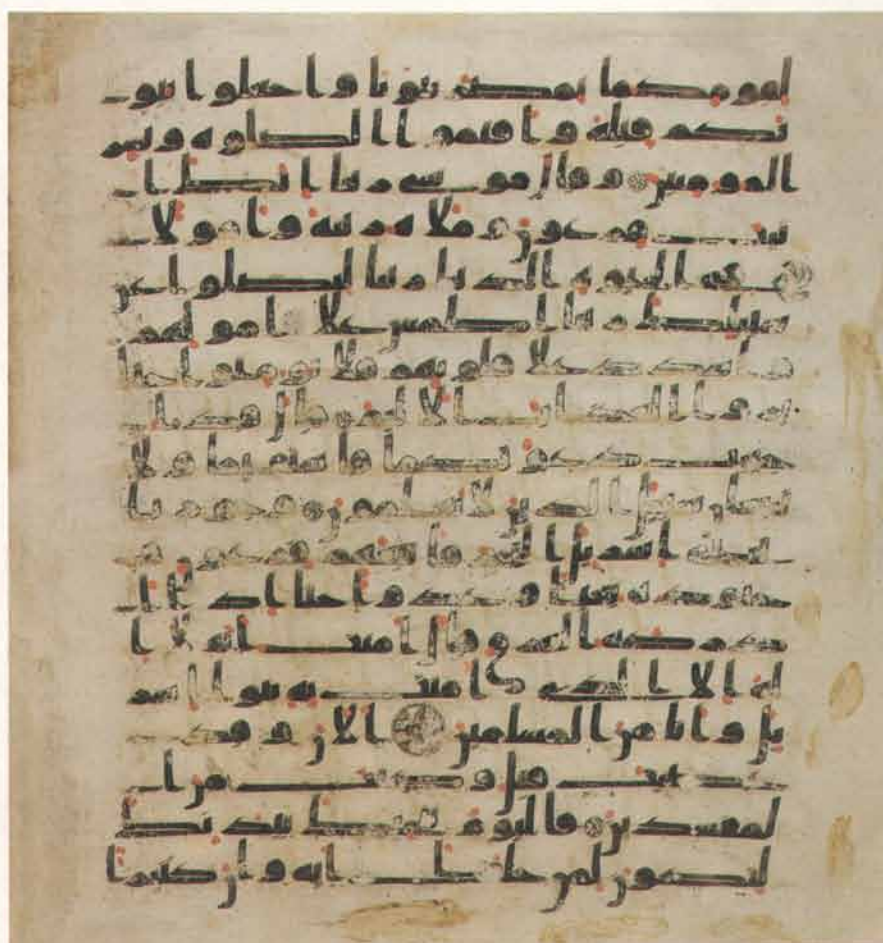 لقومكما بمصر بيوتا واجعلوا بيو
تكم قبلة واقيموا الصلوة وبشر
المومنين وقال موسى ربنا انك ا
تيت فرعون وملاه زينة وامولا
في الحيوة الدنيا ربنا ليضلوا عن
سبيلك ربنا اطمس على امولهم
واشدد على قلوبهم فلا يومنوا حتى
يروا العذاب الاليم قال قد ا
جيبت دعوتكما فاستقيما ولا
تتبعان سبيل الذين لا يعلمون وجوزنا
ببني اسريل البحر فاتبعهم فرعون و
جنوده بغيا وعدوا حتى اذا ا
دركه الغرق قال امنت انه لا ا
له الا الذي امنت به بنوا اسر
يل وانا من المسلمين الان وقد
عصيت قبل وكنت من ا
لمفسدين فاليوم ننجيك ببدنك
لتكون لمن خلفك اية وان كثيرا